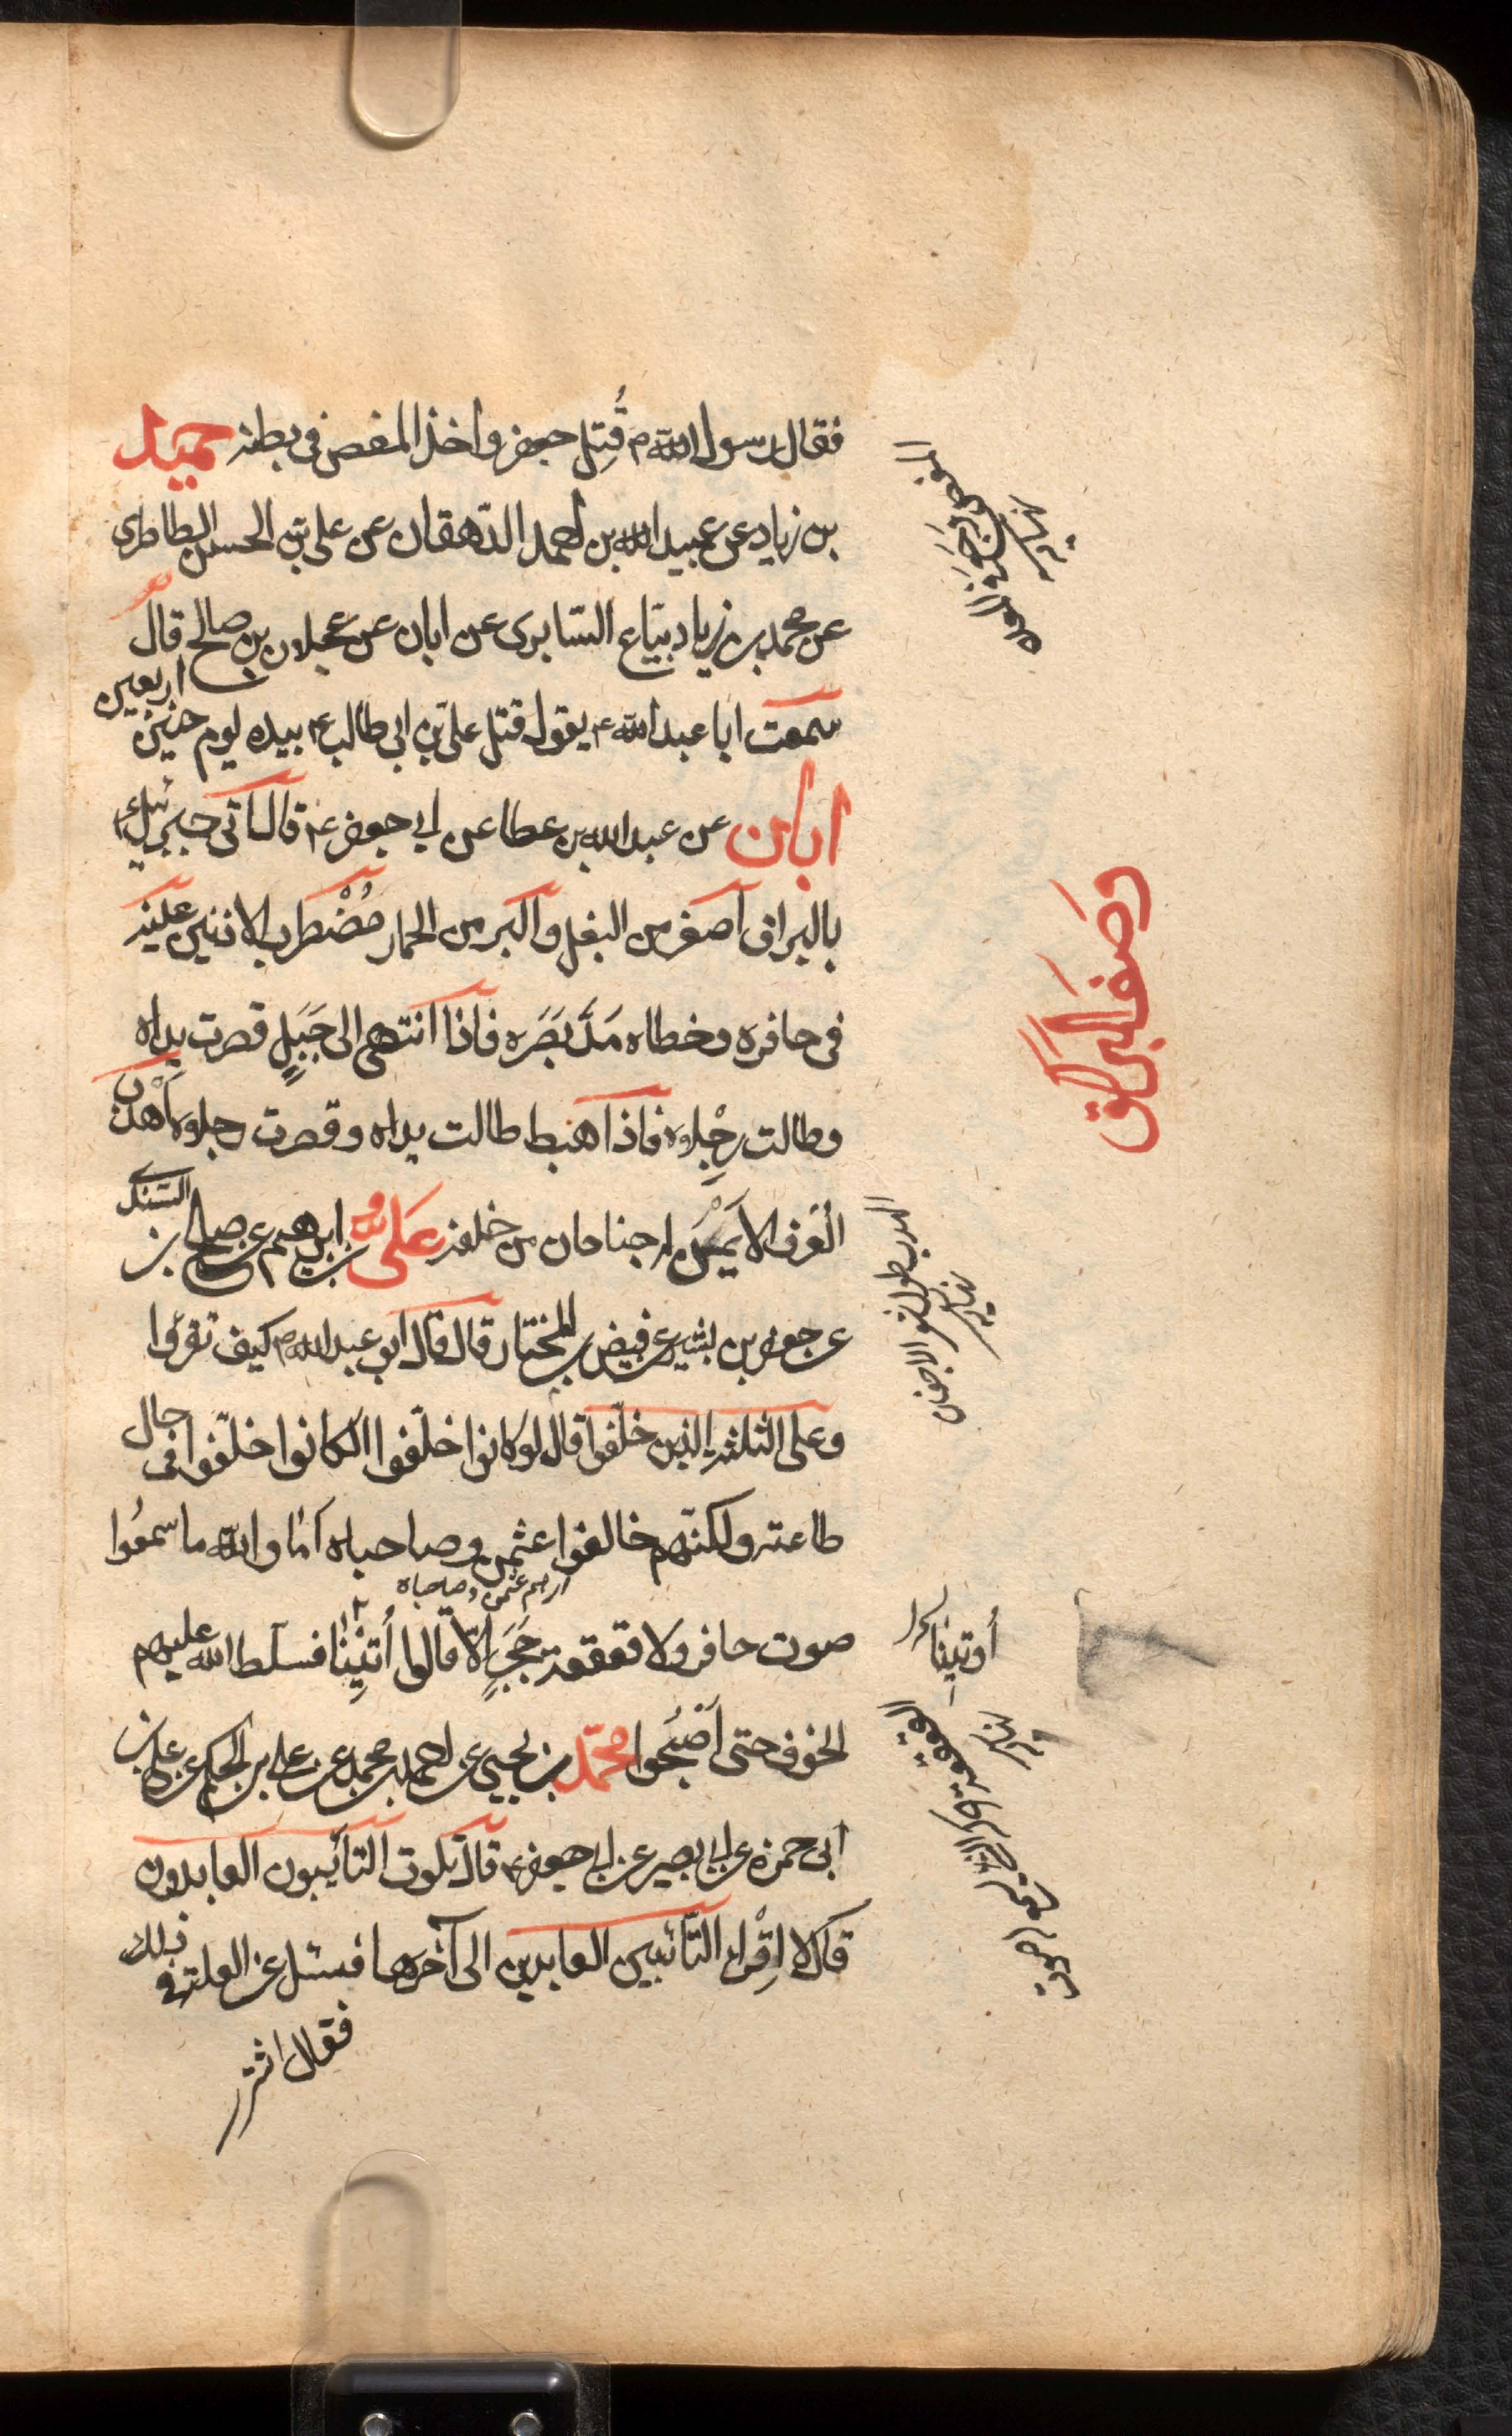 فقال رسول الله ص قُتِل جعفر واخذ المغص فى بطنه حميد
بن زياد عن عبيد الله بن احمد الدّهقان عن على بن الحسن الطاطرى
عن محمد بن زياد بيّاع السّابرى عن ابان عن عجلان بن صالح قال
سمعت ابا عبد الله ع يقول قتل على بن ابى طالب ع بيده يوم حنين اربعين
ابان عن عبد الله بن عطا عن ابى جعفر ع قال اتى جبرئيل ع
بالبراق اصغر من البغل واكبر من الحمار مُضْطرب الاذنين عينيه
فى حافره وخطاه مَدّ بَصَره فاذا انتهى الى جَبَلٍ قصرت يداه
وطالت رِجْلاه فاذا هبط طالت يداه وقصرت رجلاه اَهْدَب
العُرف الايمن له جناحان من خلفه عَلىّ بن ابرهيم عن صالح بن السّندى
عن جعفر بن بشير عن فيض بن المختار قال قال ابو عبد الله ع كيف تقرؤا
وعلى الثلثة الذين خلّفوا قال لو كانوا خلّفوا لكانوا خلّفوا فى حال
طاعته ولكنّهم خالفوا عثمن وصاحباه اما والله ما سمعُوا
اى هم عثمن وصاحباه
صوت حافر ولا قعقعة حَجَرٍ الّا قالوا اُتيِنْا فسلّط الله عليهم
الخوف حتى اَصْبحُوا محمّد بن يحيى عن احمد بن محمد عن على بن الحكم عن على بن
ابى حمزه عن ابى بصير عن ابى جعفر ع قال تلوت التآئبون العابدون
فقال لا اِقْرا التّائبين العابدين الى آخرها فسئل عن العلة فى ذلك
فقال اشترى
وصف البراق
المغص
نهايه
الاهدب طويل شعر الاجفان
نهايه
أوتينا
القعقعة حكاية